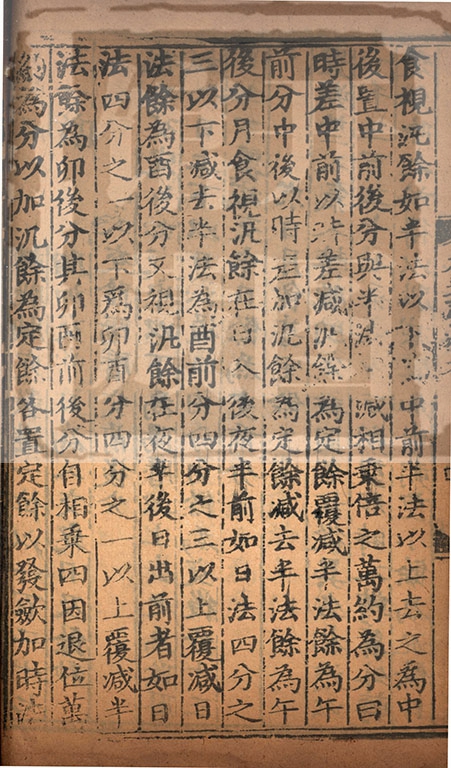 食視汎餘如半法以下為中前半法以上去之為中
後置中前後分與半法相減相乘倍之萬約為分曰
時差中前以時差減汎餘為定餘覆減半法餘為午
前分中後以時差加汎餘為定餘減去半法餘為午
後分月食視汎餘在日入後夜半前如日法四分之
三以下減去半法為酉前分四分之三以上覆減日
法餘為酉後分又視汎餘在夜半後日出前者如日
法四分之一以下為卯前分四分之一以上覆減半
法餘為卯後分其卯酉前後分自相乘四因退位萬
約為分以加汎餘為定餘各置定餘以發斂加時法